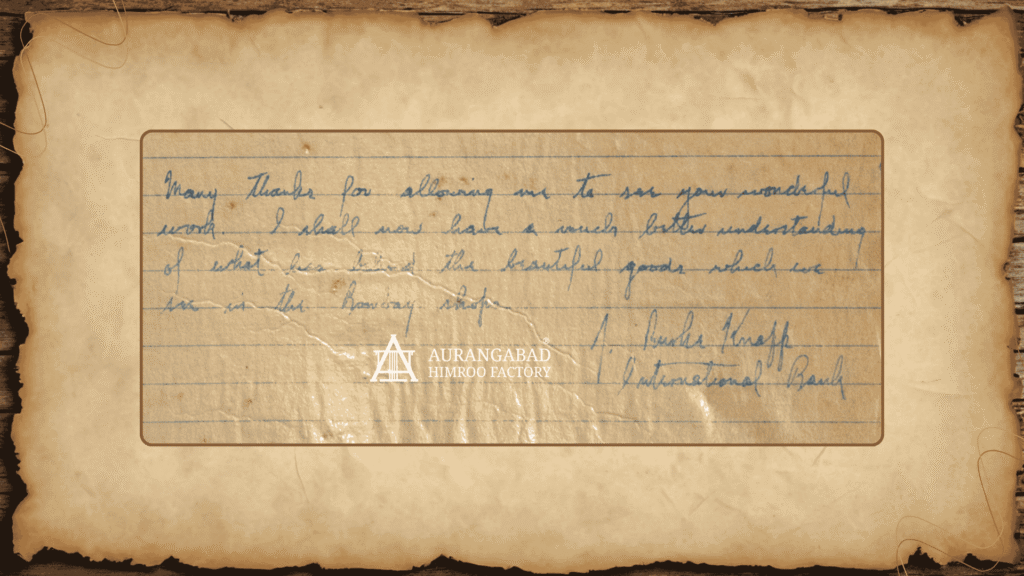 Many thanks for allowing me to see your wonderful
work. I shall now have a much better understanding
of what lies behind the beautiful goods which we
see in the Bombay shops.
J. Burke Knapp
International Bank
AURANGABAD
HIMROO FACTORY